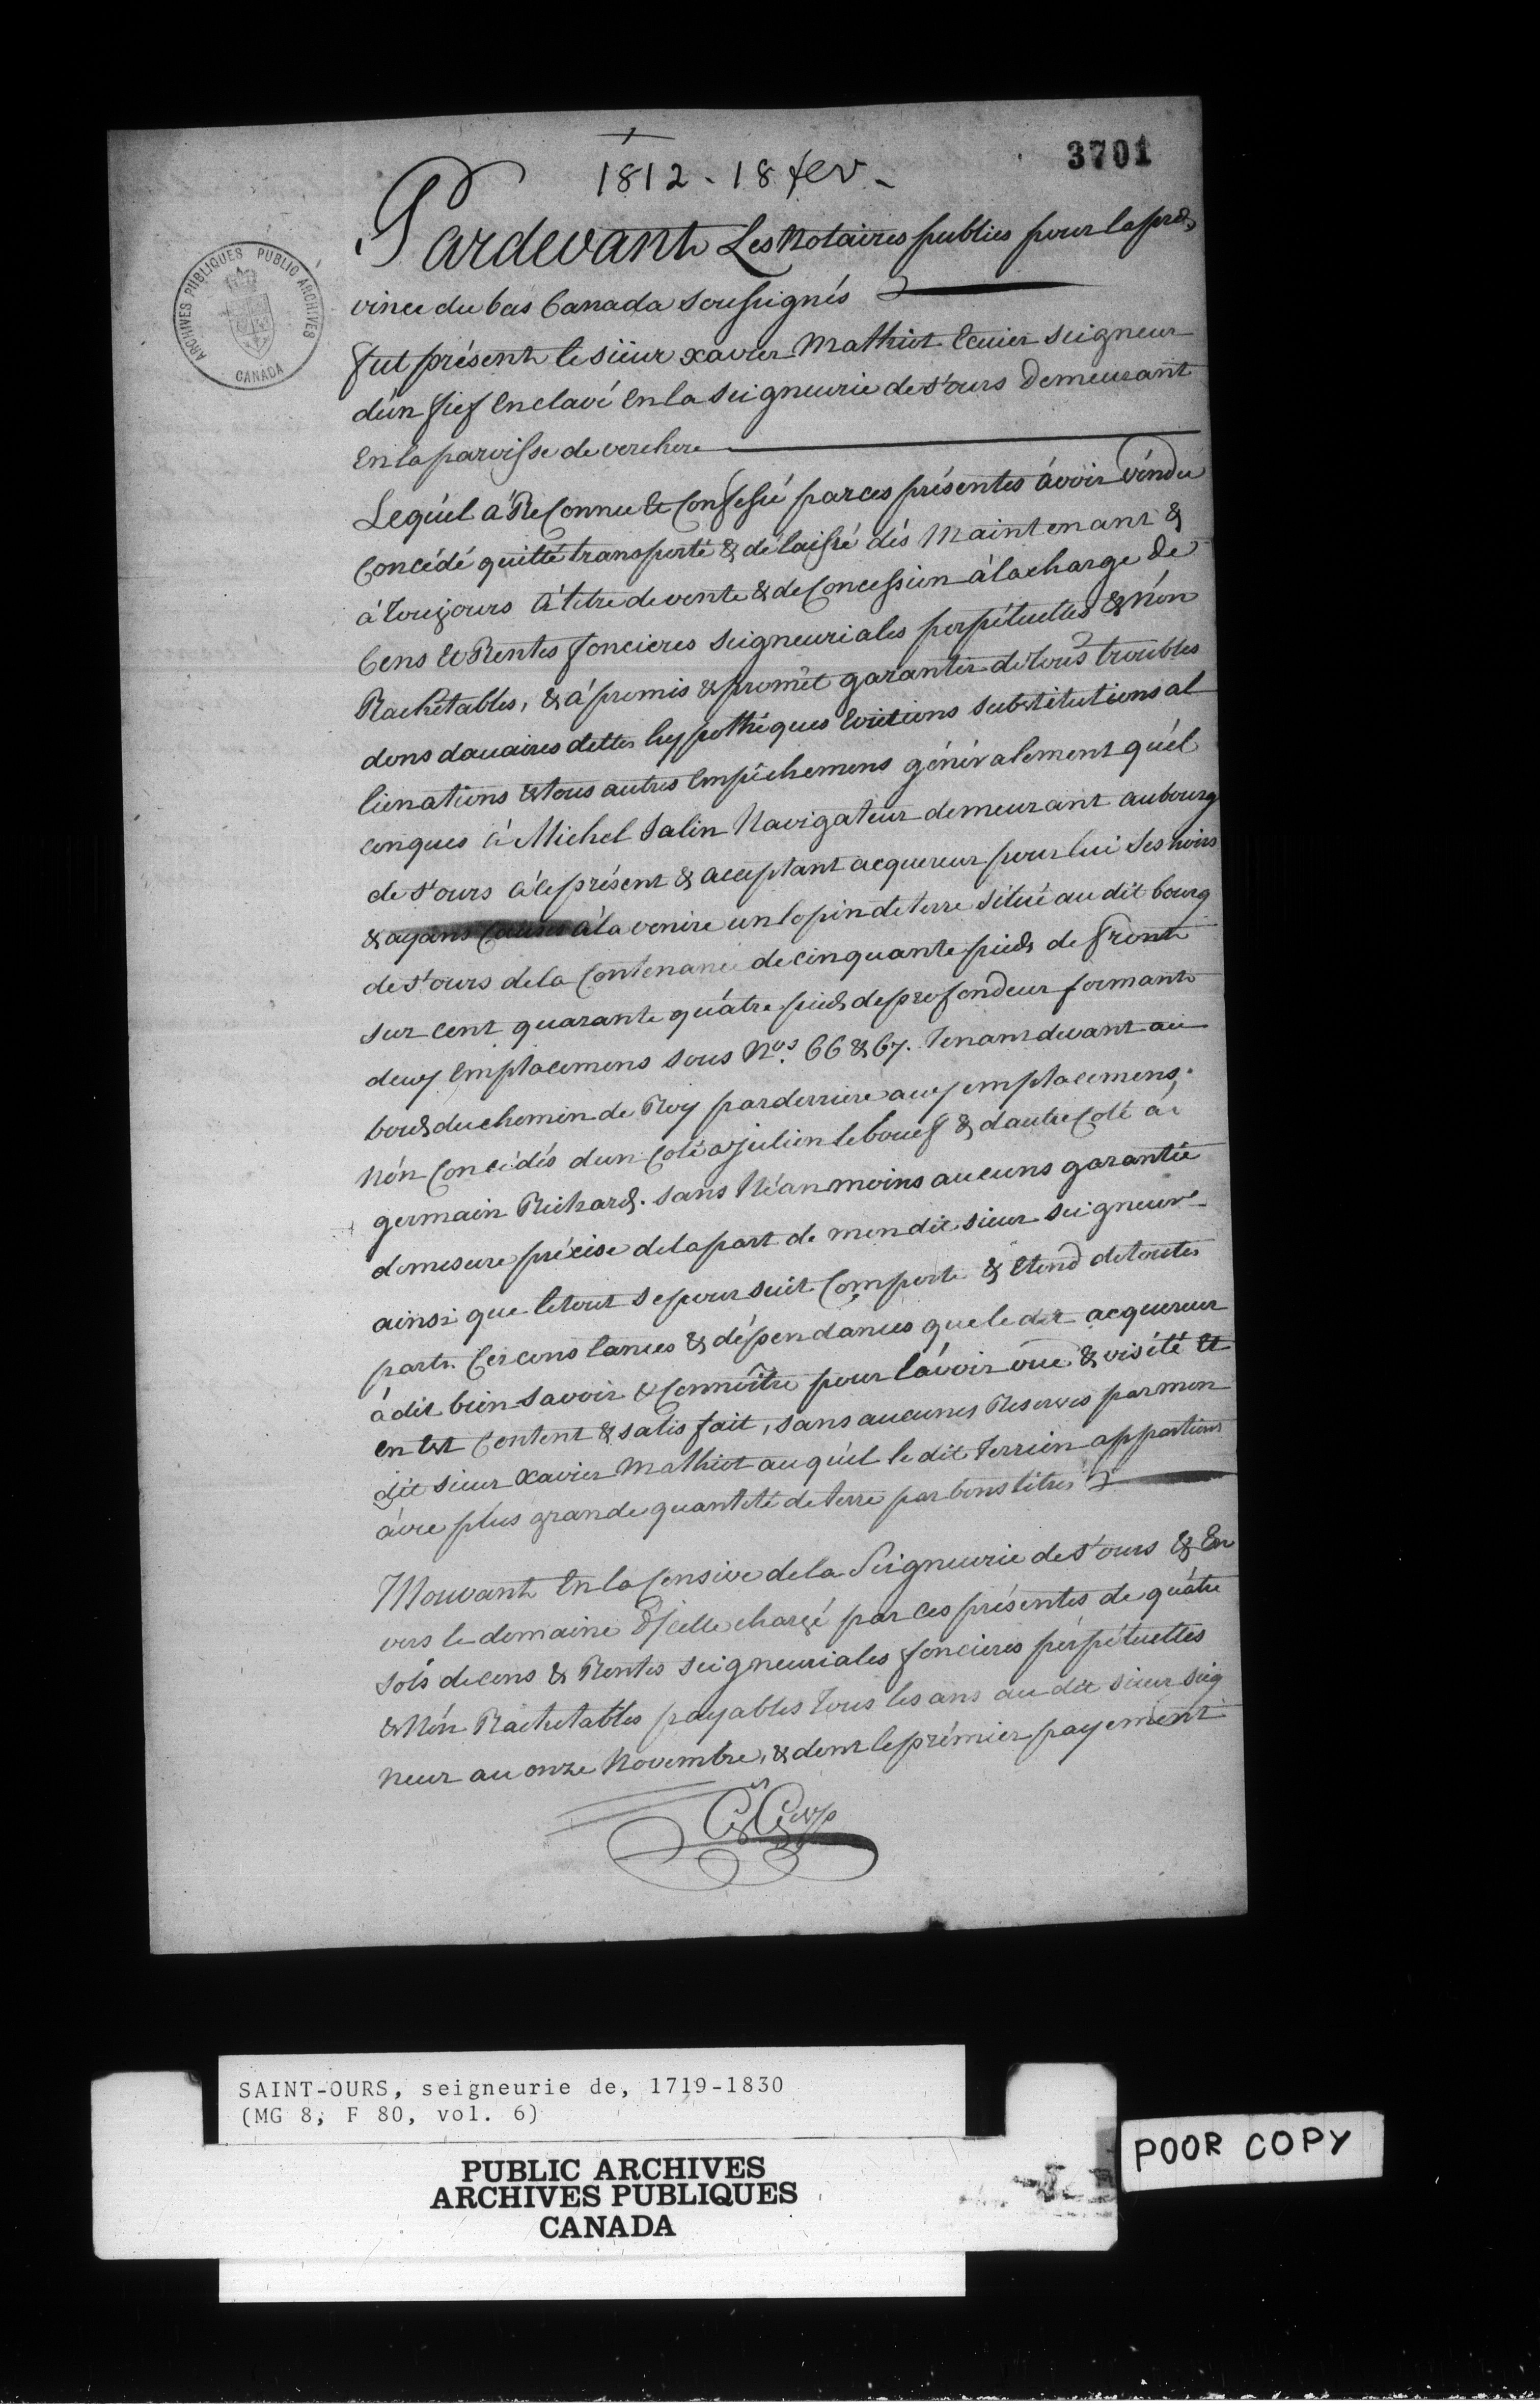 3701
1812 - 18 fev -
ARCHIVES PUBLIQUES PUBLIC ARCHIVES
CANADA
Pardevant Les Notaires publics pour la pro
vince du bas Canada soussignés
fut présent le siëur xavier Mathiot Ecuier seigneur
d'un fief Enclavé En la seigneurie de st ours Demeurant
En la paroisse de verchere
Lequél à Reconnu & Confessé par ces présentes ávoir véndu
Concédé quitté transporté & délaissé dés Maintenant &
à toujours à titre de vente & de Concession à la charge de
Cens & Rentes foncieres seigneuriales perpétuelles & Nón
Rachétables, & à promis & promêt garantir de tous troubles
dons douaires dettes hypothéques Evictions substitutions al
lienations & tous autres Empêchemens généralement quél
conques à Michel Salin Navigateur demeurant au bourg
de st ours à ce présent & acceptant acquereur pour lui ses hoirs
& ayans Causes à la venire un lopin de terre situé au dit bourg
de st ours de la Contenance de cinquante pieds de front
sur cent quarante quátre pieds de profondeur formant
deux Emplacemens sous Nos. 66 & 67. Tenant devant au
bord du chemin de Roy par derriere aux emplacemens
Nón Concédés d'un Coté a julien leboeuf & d'autre Coté à
germain Richard. sans Néanmoins aucuns garantie
de mesure précise de la part de mon dit sieur seigneur
ainsi que le tout se poursuit Comporte & Etend de toutes
parts. Circonstances & dépendances que le dit acquereur
à dit bien savoir & Connoître pour l'ávoir vüe & visité &
en Est Content & satisfait, sans aucunes Reserves par mon
dit sieur xavier Mathiot auquél le dit Terrein appartient
ávec plus grande quantité de terre par bons titres
Mouvant En la Censive de la Seigneurie de st ours & En
vers le domaine D'jcelle chargé par ces présentes de quátre
sols de cens & Rentes seigneuriales foncieres pérpétuelles
& Nón Rachetables payables tous les ans au dit sieur seig
neur au onze Novembre, & dont le prémier payement
SAINT-OURS, seigneurie de, 1719-1830
(MG 8, F 80, vol. 6)
PUBLIC ARCHIVES
ARCHIVES PUBLIQUES
CANADA
POOR COPY